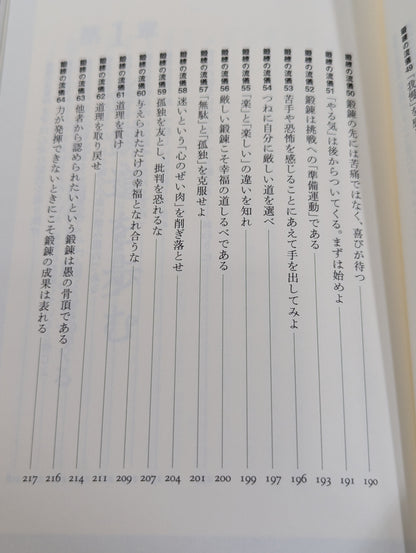 鍛錬の流儀49
鍛錬の流儀50 鍛錬の先には苦痛ではなく、喜びが待つ 190
鍛錬の流儀51 「やる気」は後からついてくる。まずは始めよ 191
鍛錬の流儀52 鍛錬は挑戦への「準備運動」である 193
鍛錬の流儀53 苦手や恐怖を感じることにあえて手を出してみよ 196
鍛錬の流儀54 つねに自分に厳しい道を選べ 197
鍛錬の流儀55 「楽」と「楽しい」の違いを知れ 199
鍛錬の流儀56 厳しい鍛錬こそ幸福の道しるべである 200
鍛錬の流儀57 「無駄」と「孤独」を克服せよ 201
鍛錬の流儀58 迷いという「心のぜい肉」を削ぎ落とせ 204
鍛錬の流儀59 孤独を友とし、批判を恐れるな 207
鍛錬の流儀60 与えられただけの幸福となれ合うな 209
鍛錬の流儀61 道理を貫け 211
鍛錬の流儀62 道理を取り戻せ 214
鍛錬の流儀63 他者から認められたいという鍛錬は愚の骨頂である 216
鍛錬の流儀64 力が発揮できないときにこそ鍛錬の成果は表れる 217